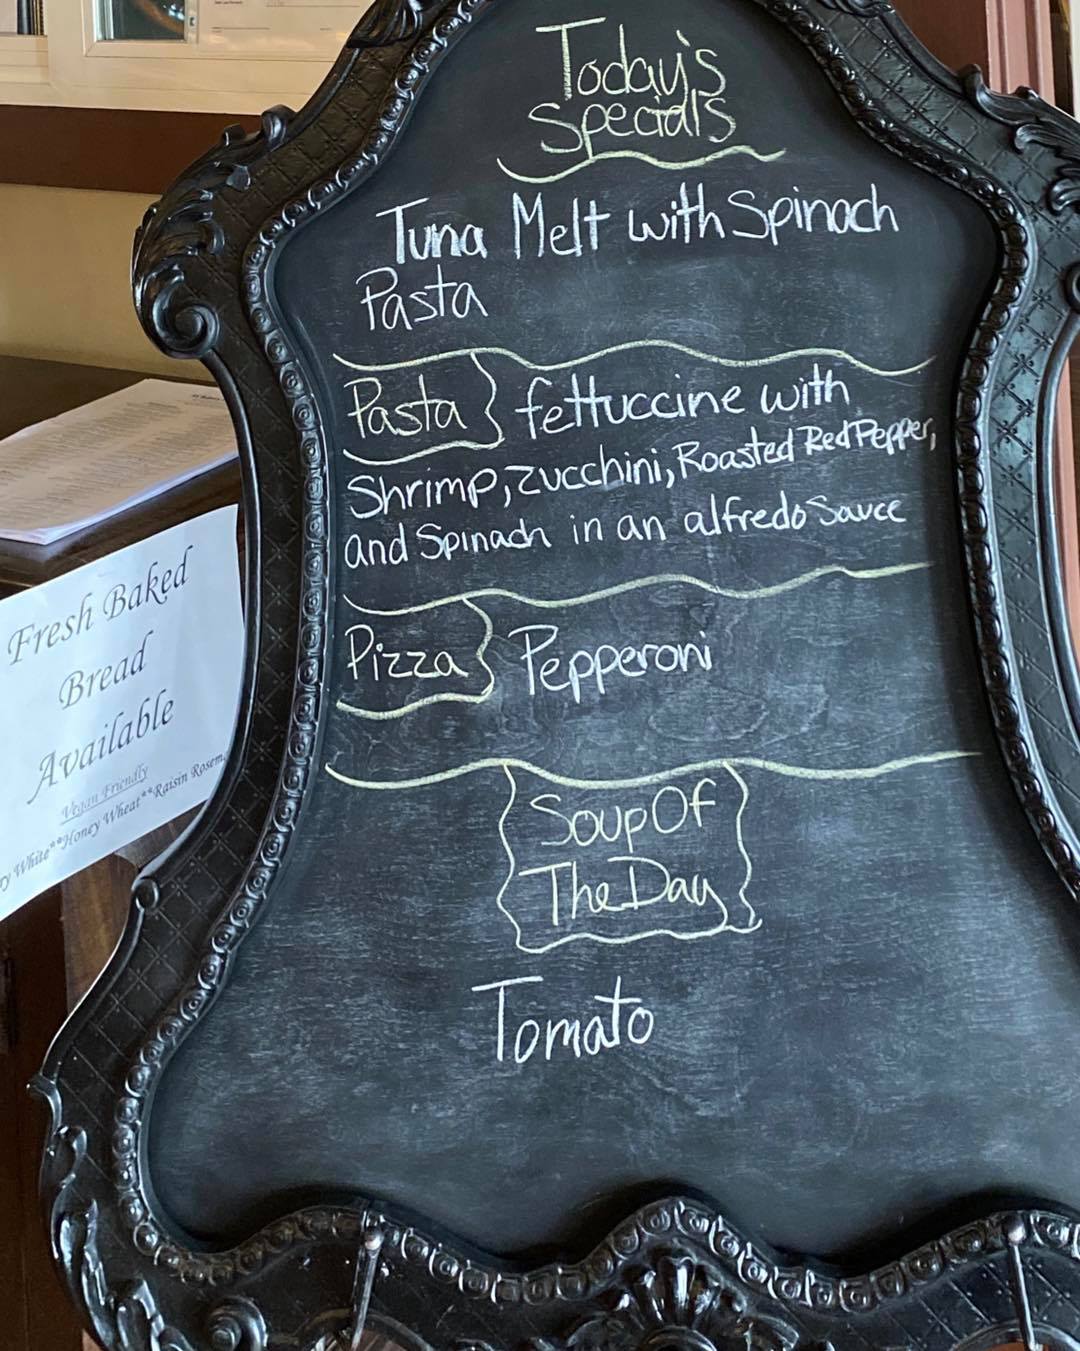 Today's
Special's
Tuna Melt with Spinach
Pasta
Pasta fettuccine with
Shrimp, Zucchini, Roasted Red Pepper,
and Spinach in an alfredo Sauce
Pizza Pepperoni
Soup Of
The Day
Tomato
Fresh Baked
Bread
Available
Vegan Friendly
White**Honey Wheat**Raisin